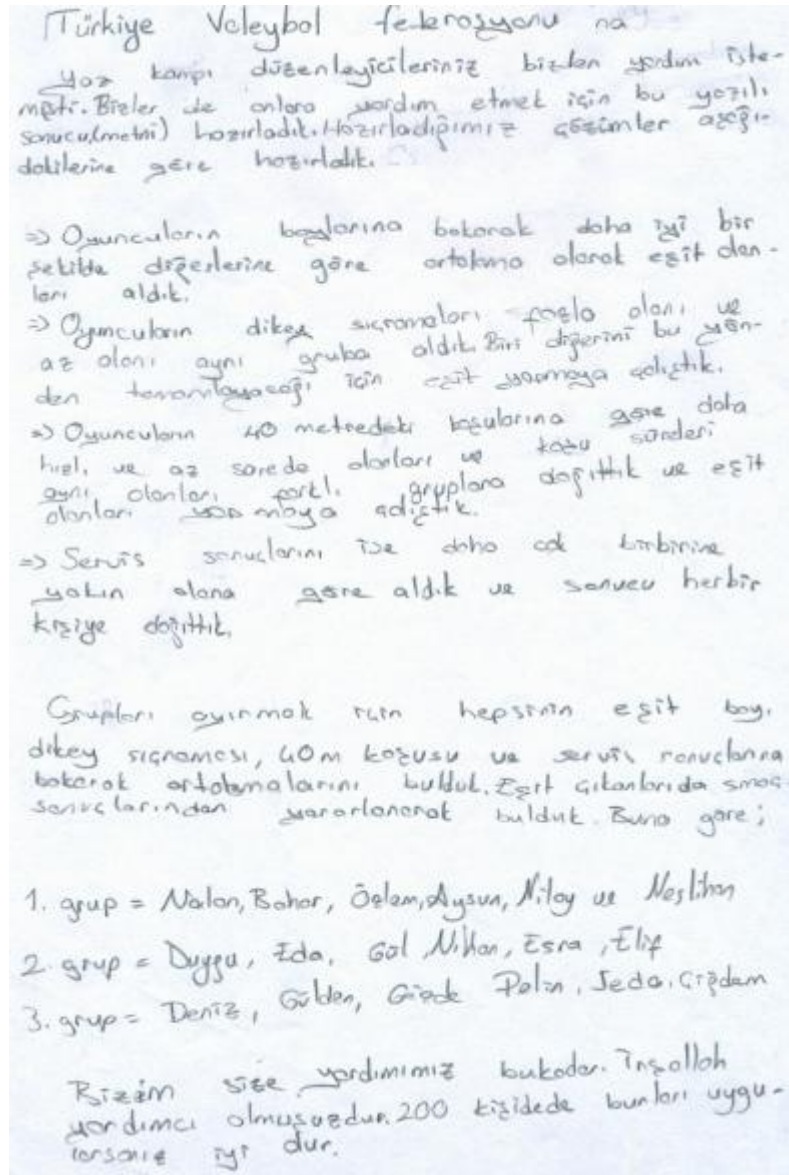 Türkiye Voleybol federasyonu na
Yaz kampı düzenleyicileriniz bizden yardım iste-
mişti. Bizler de onlara yardım etmek için bu yazılı
sonucu(metni) hazırladık. Hazırladığımız çözümler aşağı-
dakilerine göre hazırladık.
=> Oyuncuların boylarına bakarak daha iyi bir
şekilde diğerlerine göre ortalama olarak eşit olan-
ları aldık.
=> Oyuncuların dikey sıçramaları fazla olanı ve
az olanı aynı gruba aldık. Biri diğerini bu yön-
den tamamlayacağı için eşit yapmaya çalıştık.
=> Oyuncuların 40 metredeki koşularına göre daha
hızlı ve az sürede olanları ve koşu süreleri
aynı olanları farklı gruplara dağıttık ve eşit
olanları yapmaya çalıştık.
=> Servis sonuçlarını ise daha çok birbirine
yakın olana göre aldık ve sonucu herbir
kişiye dağıttık.
Grupları ayırmak için hepsinin eşit boy,
dikey sıçraması, 40m koşusu ve servis sonuçlarına
bakarak ortalamalarını bulduk. Eşit çıkanlarıda smaç
sonuçlarından yararlanarak bulduk. Buna göre;
1. grup = Nalan, Bahar, Özlem, Aysun, Nilay ve Neslihan
2. grup = Duygu, Eda, Gül, Nihan, Esra, Elif
3. grup = Deniz, Gülden, Gözde Pelin, Seda, Çiğdem
Bizim size yardımımız bukadar. İnşallah
yardımcı olmuşuzdur. 200 kişidede bunları uygu-
larsanız iyi dur.